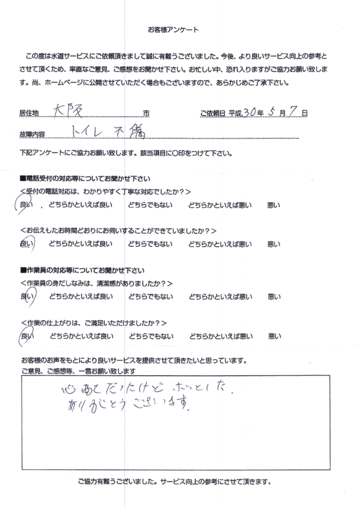 お客様アンケート
この度は水道サービスにご依頼頂きまして誠に有難うございました。今後、より良いサービス向上の参考と
させて頂くため、率直なご意見、ご感想をお聞かせ下さい。お忙しい中、恐れ入りますがご協力お願い致しま
す。尚、ホームページに公開させていただく場合もございますので、あらかじめご了承下さい。
居住地 大阪 市 ご依頼日 平成 30 年 5 月 7 日
故障内容 トイレ 不備
下記アンケートにご協力お願い致します。該当項目に〇印をつけて下さい。
■電話受付の対応等についてお聞かせ下さい
<受付の電話対応は、わかりやすく丁寧な対応でしたか?>
良い 、 どちらかといえば良い どちらでもない どちらかといえば悪い 悪い
<お伝えしたお時間どおりにお伺いすることができていましたか?>
良い どちらかといえば良い どちらでもない どちらかといえば悪い 悪い
■作業員の対応等についてお聞かせ下さい
<作業員の身だしなみは、清潔感がありましたか?>
良い どちらかといえば良い どちらでもない どちらかといえば悪い 悪い
<作業の仕上がりは、ご満足いただけましたか?>
良い どちらかといえば良い どちらでもない どちらかといえば悪い 悪い
お客様のお声をもとにより良いサービスを提供させて頂きたいと思っています。
ご意見、ご感想等、一言お願い致します
心配だったけどホッとした。
ありがとうございます。
ご協力有難うございました。サービス向上の参考にさせて頂きます。